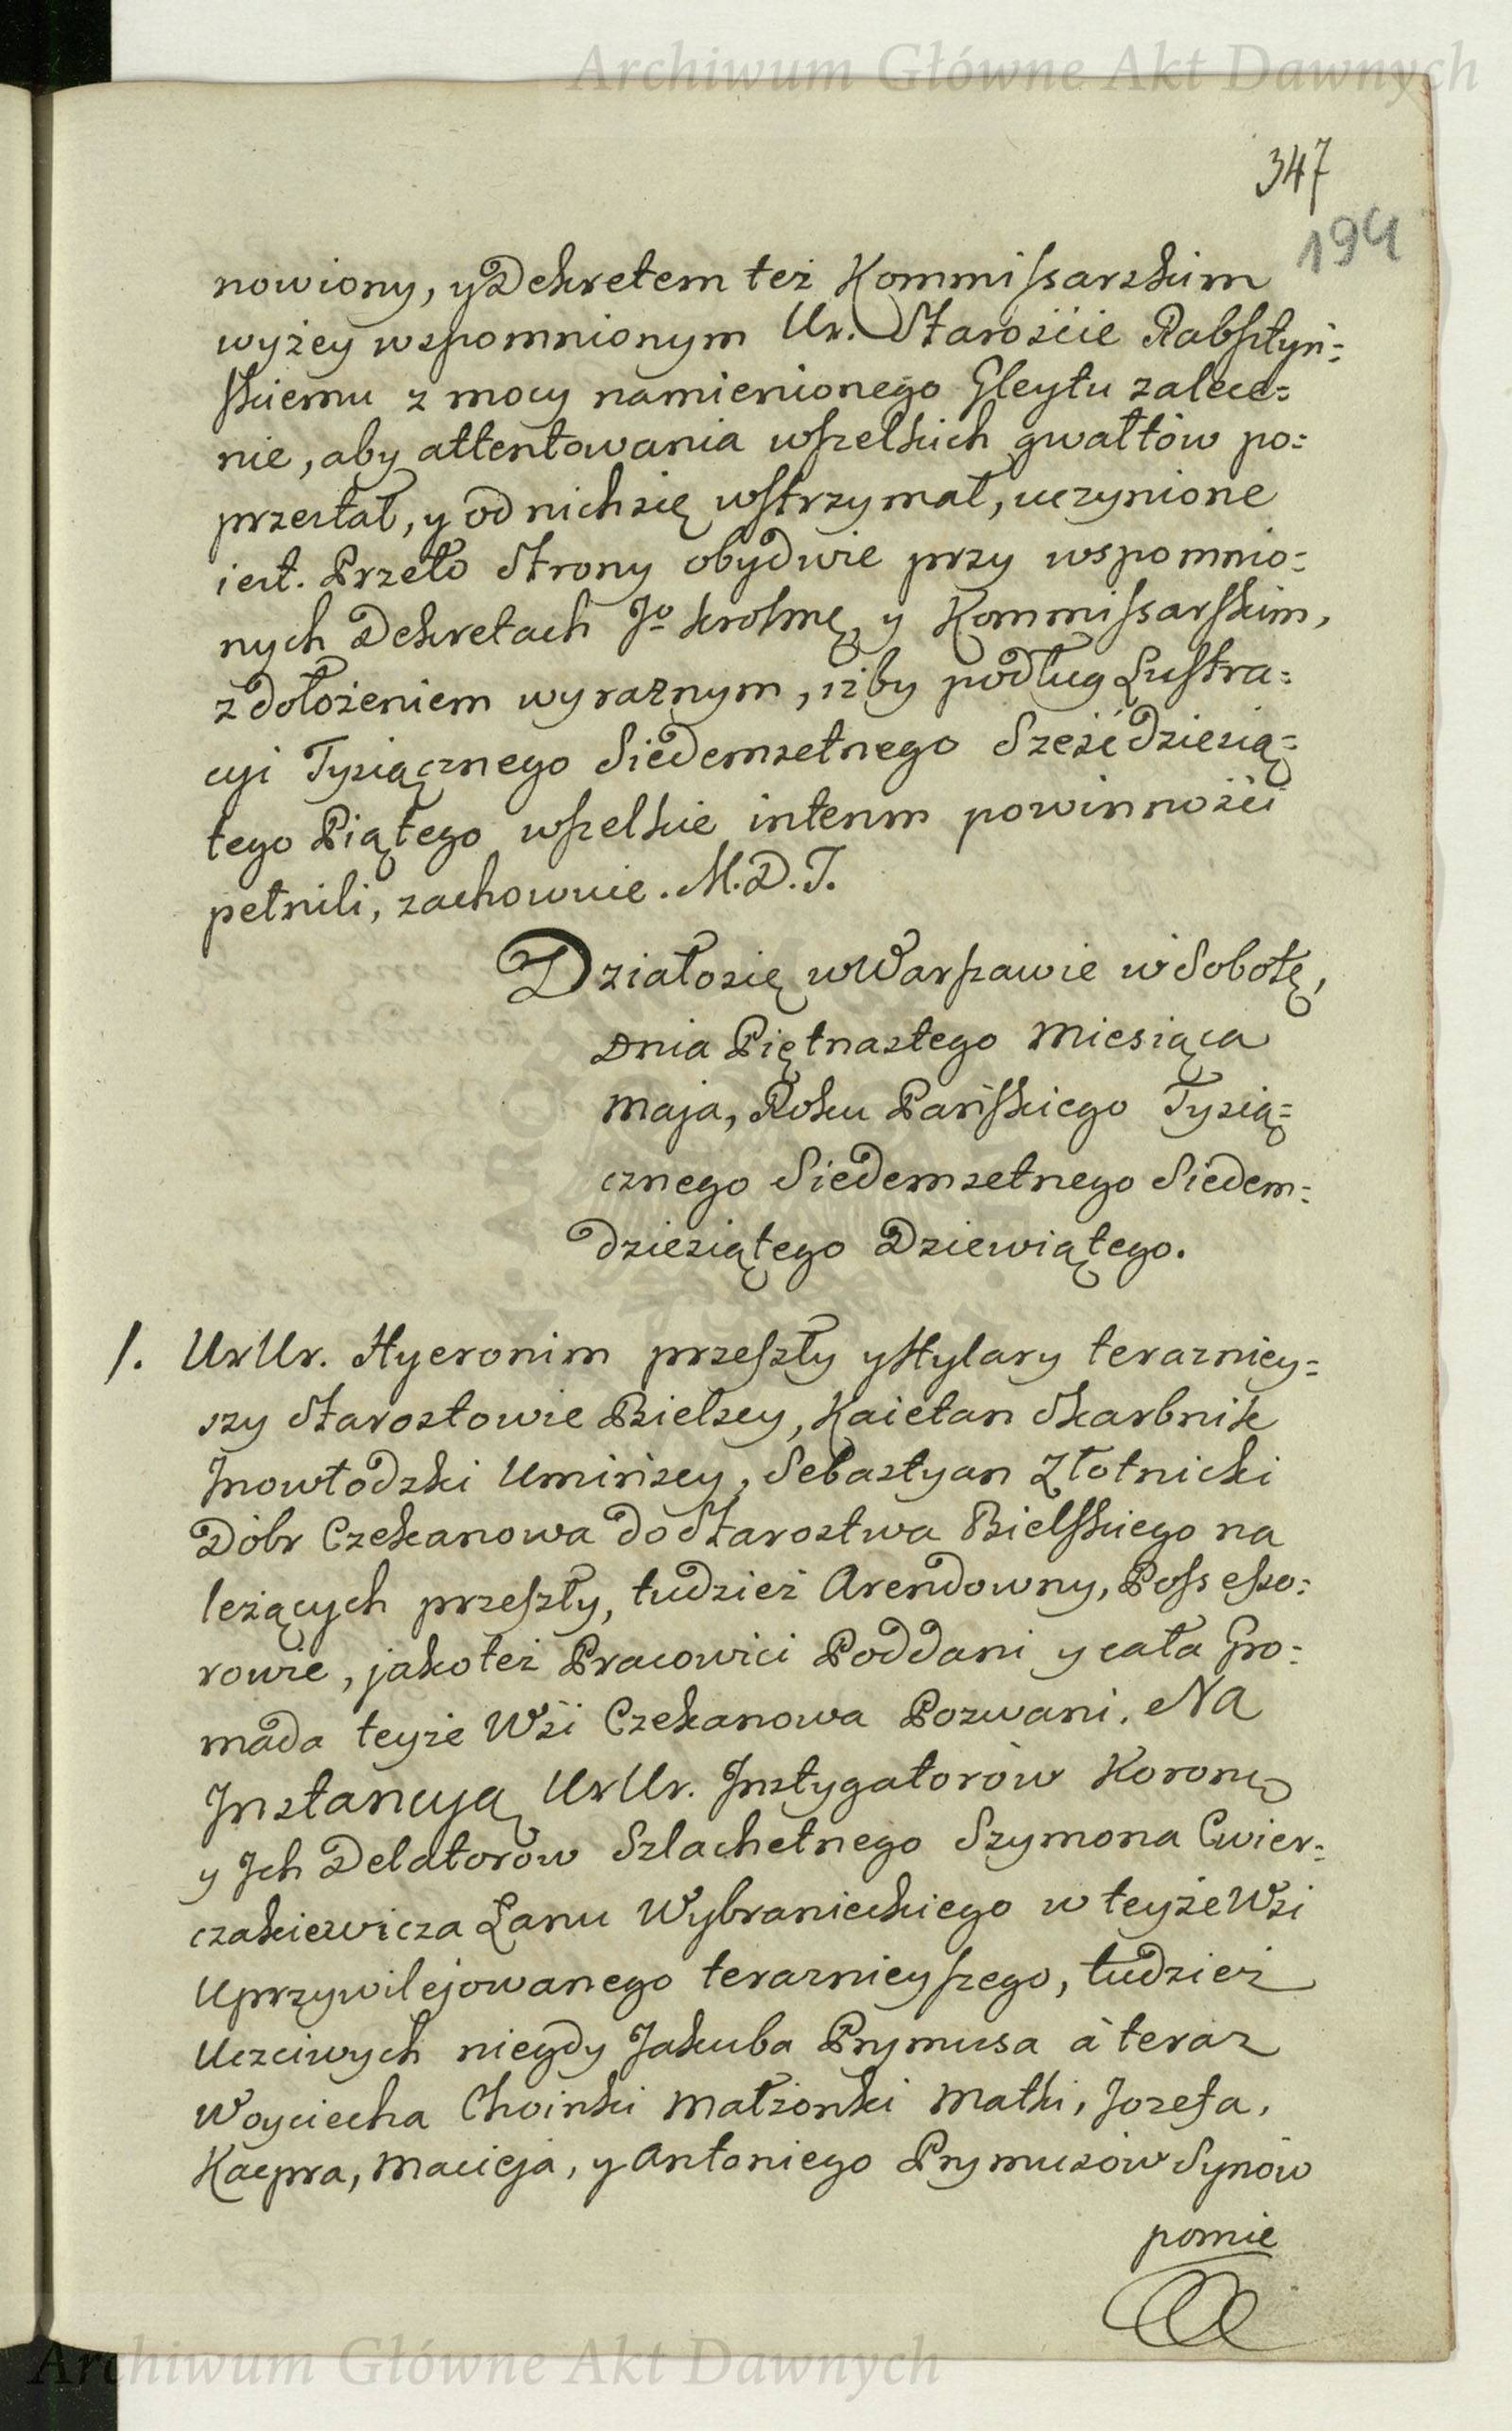 Archiwum Główne Akt Dawnych
347
194
nowiony, y Dekretem też Kommissarskim
wyżey wspomnionym Ur. Starośćie Rabsztyń=
skiemu z mocy namienionego Gleytu zalece=
nie, aby attentowania wszelkich gwałtów po=
przestał, y od nich się wstrzymał, uczynione
iest. Przeto Strony obydwie przy wspomnio=
nych Dekretach Jo Krolmę, y Kommissarskim,
z dołożeniem wyraznym, iżby podług Lustra=
cyi Tysiącznego Siedemsetnego Sześćdziesią=
tego Piątego wszelkie interim powinnośći
pełnili, zachowuie. M.D.T.
Działo się w Warszawie w Sobotę,
Dnia Piętnastego Miesiąca
Maja, Roku Pańskiego Tysią=
cznego Siedemsetnego Siedem=
dziesiątego Dziewiątego.
1. UrUr. Hyeronim przeszły y Hylary terazniey=
szy Starostowie Bielscy, Kaietan Skarbnik
Inowłodzki Umińscy, Sebastyan Złotnicki
Dóbr Czekanowa do Starostwa Bielskiego na
leżących przeszły, tudzież Arendowny, Possesso=
rowie, jako też Pracowici Poddani y cała Gro=
mada teyże Wśi Czekanowa Pozwani. Na
Instancyą UrUr. Instygatorów Koronę
y Ich Delatorów Szlachetnego Szymona Cwier=
czakiewicza Łanu Wybranieckiego w teyże Wsi
Uprzywilejowanego teraznieyszego, tudzież
Uczciwych niegdy Jakuba Prymusa à teraz
Woyciecha Choinki Małżonki Matki, Jozefa,
Kacpra, Macieja, y Antoniego Prymusów Synów
pomie
Archiwum Główne Akt Dawnych